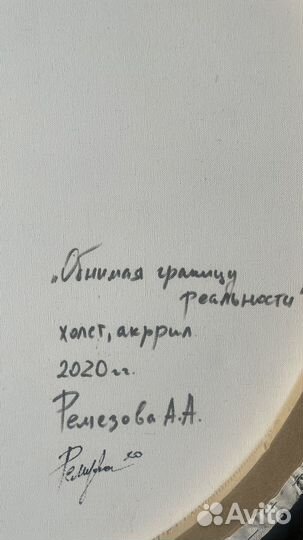 „Обнимая границу
реальности"
холст, акррил
2020 гг.
Ремезова А.А.
Avito